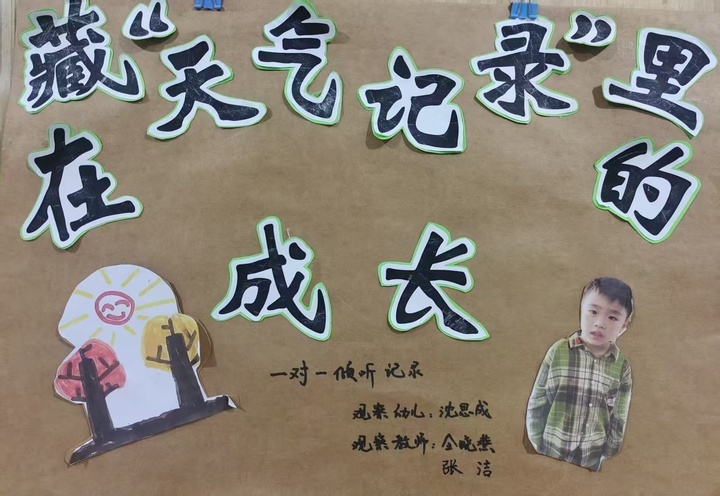 藏“天气记录”里
在的
成长
一对一倾听记录
观察幼儿：沈思成
观察教师：仝晓燕
张洁